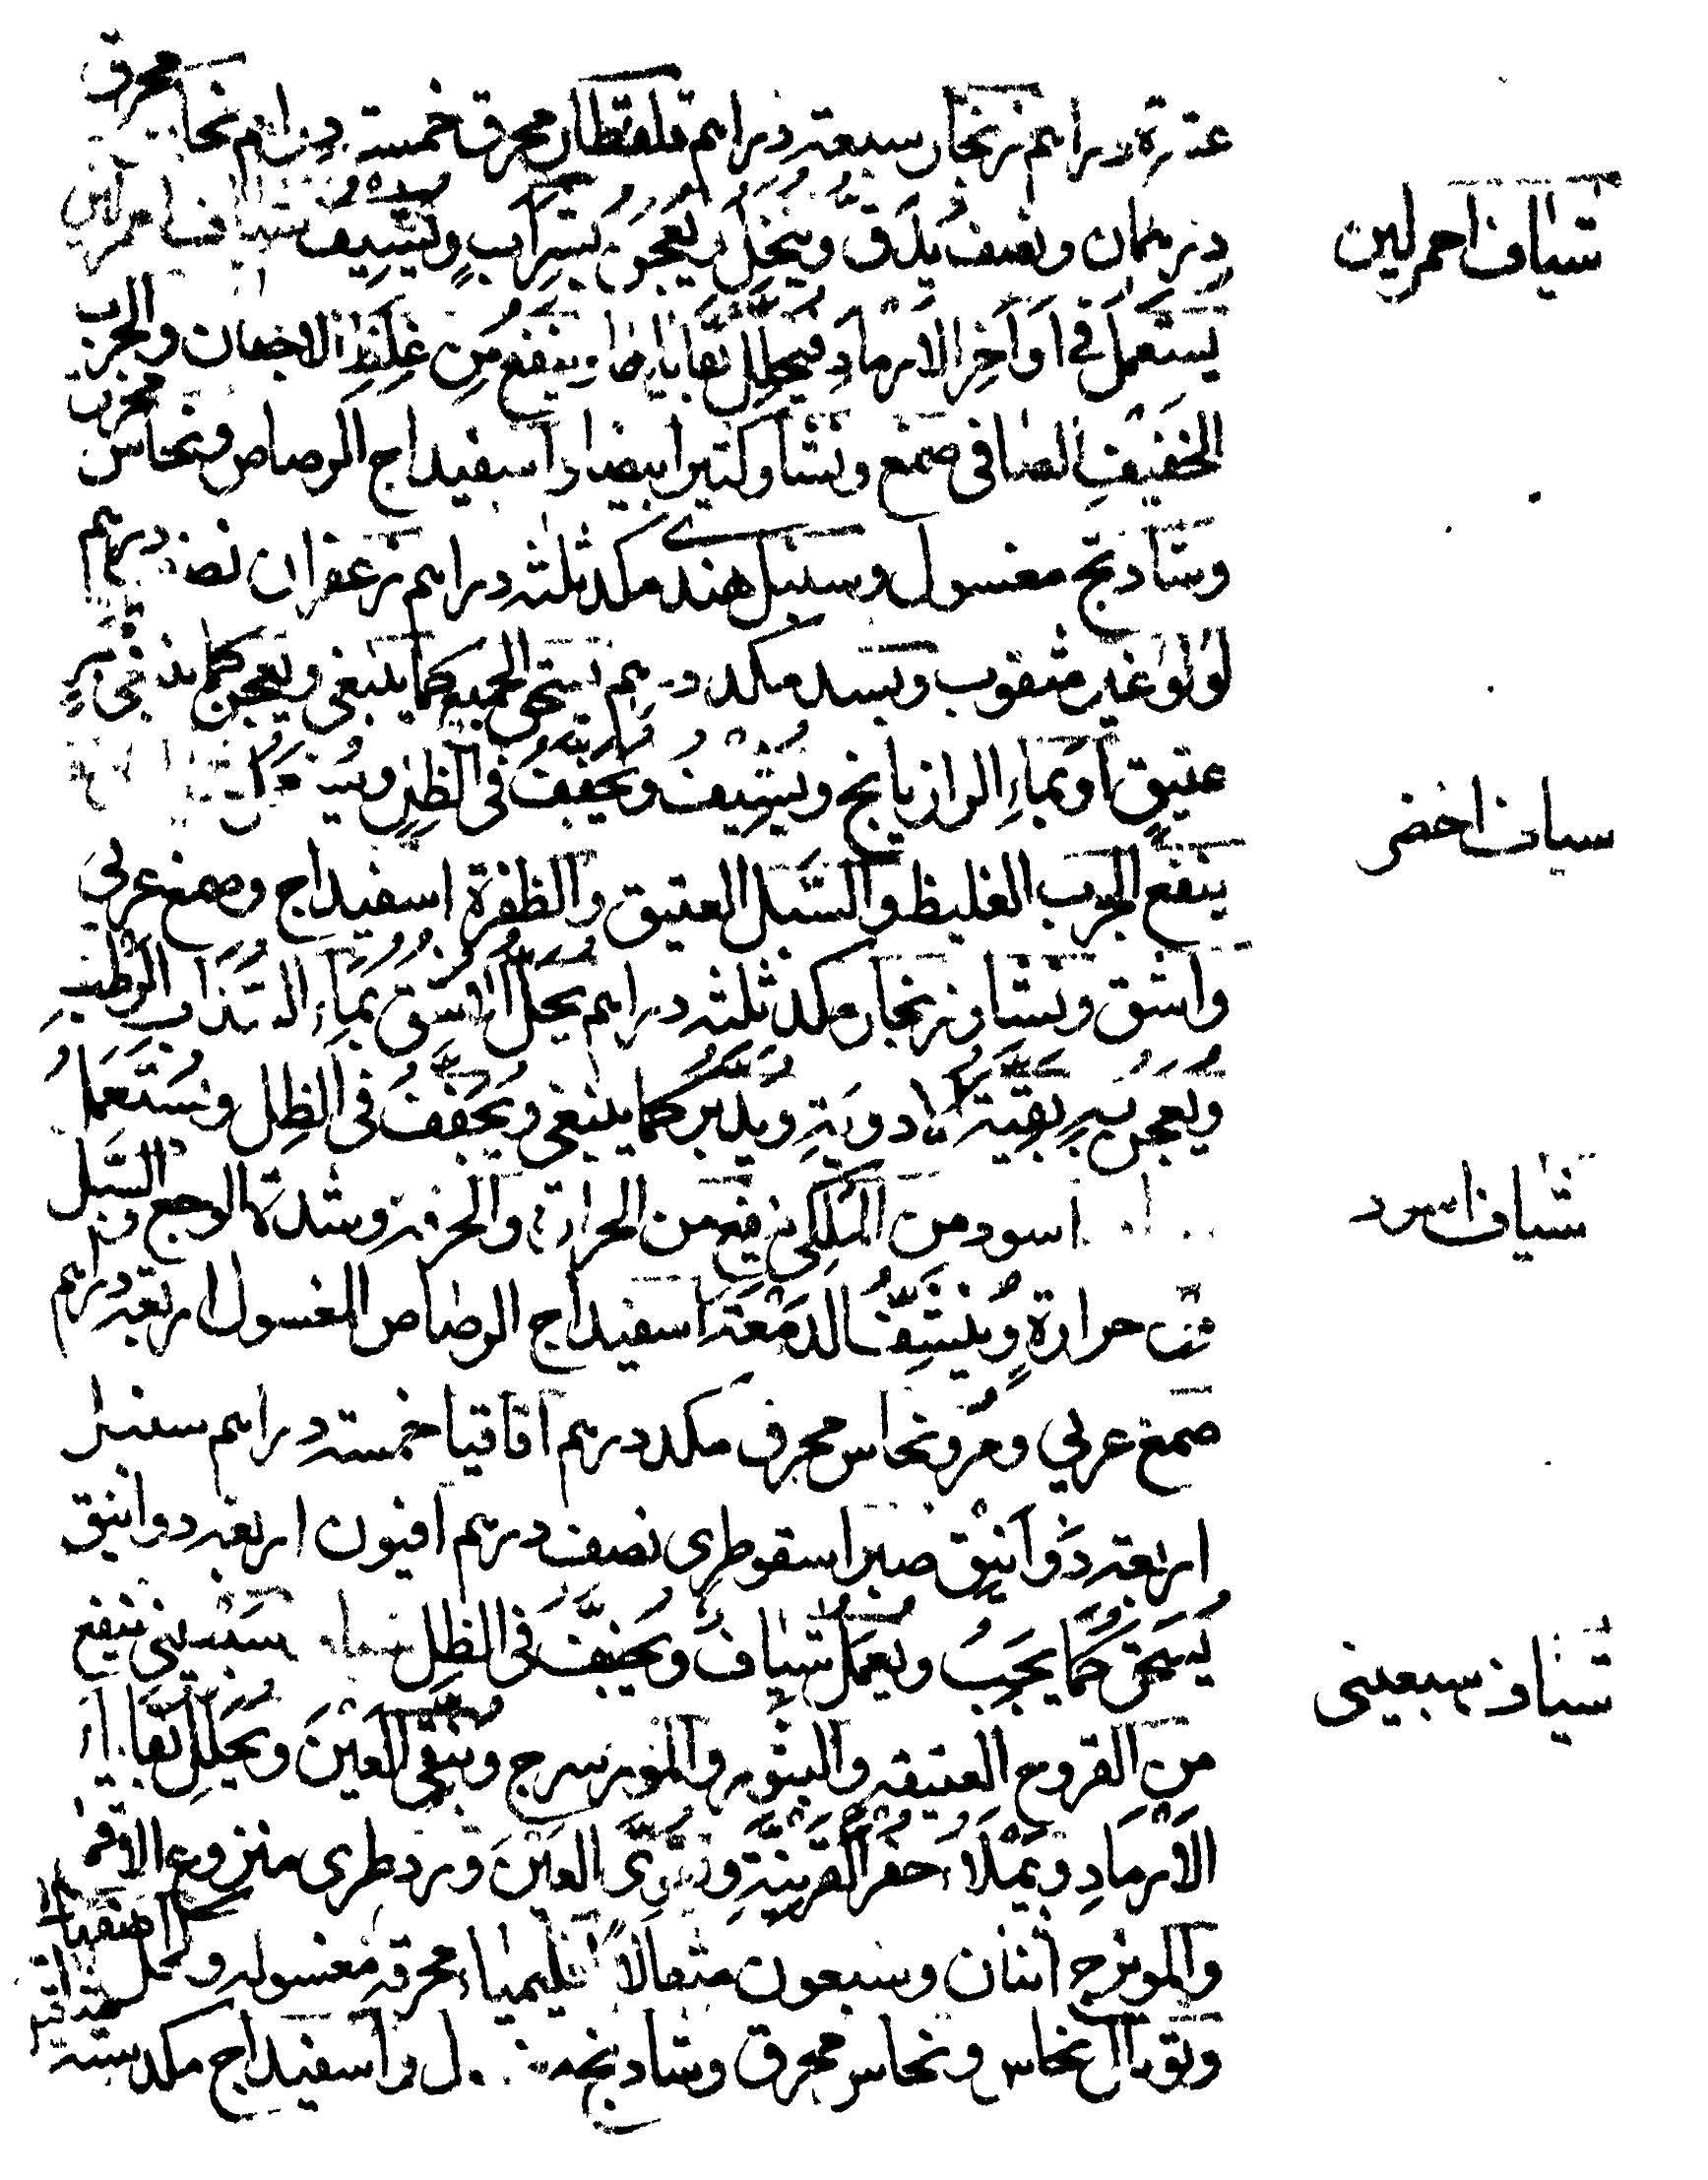 عشرة دراهم زنجار سبعة دراهم قلقطار محرق خمسة دراهم نحاس محرق
درهمان ونصف يدق وينخل ويعجن بشراب ويشيف شياف احمر لين
شياف احمر لين
يستعمل في اواخر الارماد فيحلل بقاياها وينفع من غلظ الاجفان والجرب
الخفيف الصافى صمغ ونشا وكثيرا بيضا واسفيداج الرصاص ونحاس محرق
وشادنج مغسول وسنبل هندے مكد ثلثه دراهم زعفران نصف درهم
لولو غير مثقوب وبسد مكد درهم يسحق الجميع كما ينبغى ويعجن كما ينبغى
عتيق او بماء الرازيانج ويشيف ويجفف فى الظل
شياف اخضر
ينفع الجرب الغليظ والسبل العتيق والظفرة اسفيداج وصمغ عربي
واشق ونشا وزنجار مكد ثلثه دراهم يحل الاشق بماء السذاب الرطب
ويعجن به بقية الادوية ويدبر كما ينبغى ويجفف فى الظل ويستعمل
شياف اسود
اسود من الملكى ينفع من الحرارة والحرقة وشدة الوجع والسبل
حرارة وينشف الدمعة اسفيداج الرصاص المغسول اربعة دراهم
صمغ عربي ومر ونحاس محرق مكد درهم اقاقيا خمسة دراهم سنبل
اربعة دوانيق صبر اسقوطرى نصف درهم افيون اربعه دوانيق
يسحق كما يجب ويعمل شياف ويجفف فى الظل شياف سبعينى ينفع
شياف سبعينى
من القروح العتيقه والبثور والمورسرج وينقى العين ويحلل بقايا
الارماد ويملأ حفر القرنية ويقوى العين ورد طرى منزوع الاقماع
والموزج اثنان وسبعون مثقالا اقليمياء محرقه مغسوله وكحل اصفهانى
وتوبال نحاس ونحاس محرق وشادنج واسفيداج مكد ستة مثاقيل